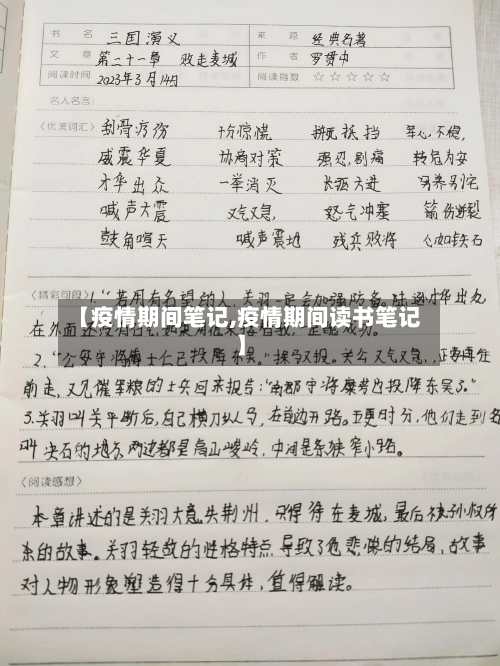 书 名 三国演义 来 源 经典名著
文 章 第二十一章 败走麦城 作 者 罗贯中
阅读时间 2023年3月14日 阅读指数 ☆☆☆☆☆
名人名言:
(优美词汇) 刮骨疗伤 十分惊慌 军心不稳,
威震华夏 协商对策 强忍剧痛 转危为安
才华出众 一举消灭 长驱大进
喊声大震 又气又急, 怒气冲塞 箭伤迸裂
鼓角喧天 喊声震地 残兵败将 心如铁石
(精彩句段) 1."若用有名望的人,关羽一定会加强防备。陆逊才华出众
在外面还没有名
【疫情期间笔记,疫情期间读书笔记
】
2."公安守将傅士仁已投降东吴."探马又报。关公又气又急,正要再往
前走,又见催军粮的士兵回来报告:"南郡守将糜芳也投降东吴了."
3.关羽叫关平断后,自己横刀纵马,在前边开路。五更时分,他们走到名
叫决石的地方,两边都是高山峻岭,中间是条狭窄小路。
(阅读感想)
本章讲述的是关羽大意失荆州,只得待在麦城,最后被孙权所
杀的故事。关羽轻敌的性格特点导致了他悲惨的结局,故事
对人物形象塑造得十分具体,值得解读。